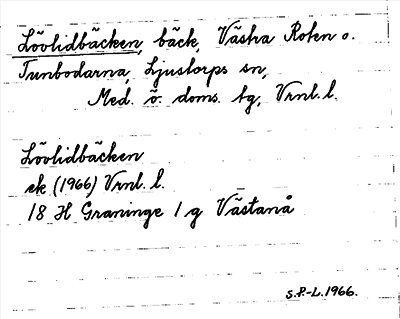 Lövlidbäcken, bäck, Västra Roten o.
Tunbodarna, Ljustorps sn,
Med. ö. doms. tg, Vrnl. l.
Lövlidbäcken
ek (1966) Vrnl. l.
18 H Graninge 1 g Västanå
S.P.-L. 1966.